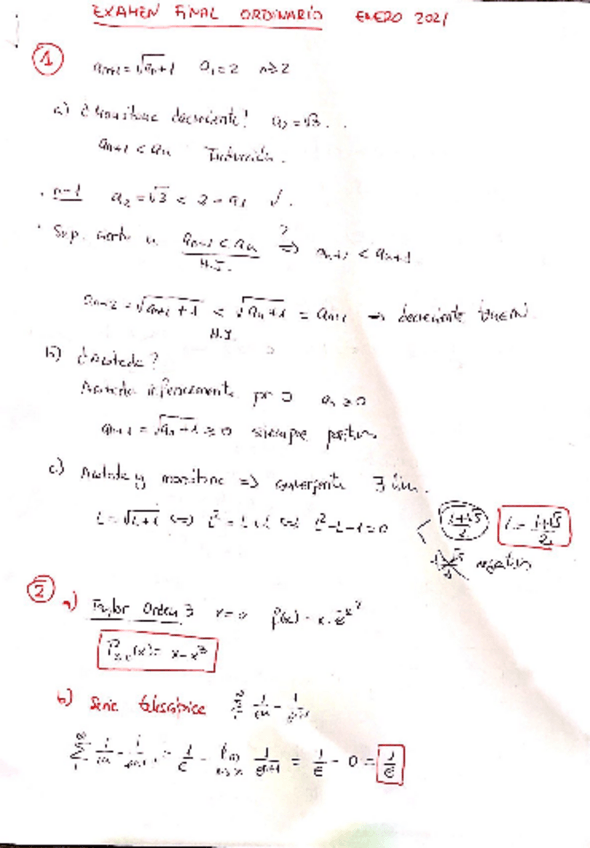 EXAMEN FINAL ORDINARIO ENERO 2021
1
an+1 = √an+1 a1 = 2 n≥2
a) ¿Monótona decreciente? a2 = √3 ..
an+1 < an Inducción.
· n=1 a2 = √3 < 2 = a1 ✓.
· Sup. cierto n an+1 < an ?⇒ an+2 < an+1
H.I.
an+2 = √an+1 + 1 < √an+1 = an+1 → decreciente ∀n∈N
H.I.
b) ¿Acotada?
Acotada inferiormente por 0 an ≥ 0
an+1 = √an+1 ≥ 0 siempre positiva
c) Acotada y monótona => convergente ∃ lim.
L = √L+1 <=> L² = L+1 <=> L²-L-1=0 < 1+√5/2 L = 1+√5/2
1-√5/2 negativa
2
a) Taylor Orden 3 x=0 f(x) = x·e^-x²
P3,0(x) = x-x³
b) Serie telescópica ∑ 1/eⁿ - 1/eⁿ⁺¹
∑ 1/eⁿ - 1/eⁿ⁺¹ = 1/e - lim n→∞ 1/eⁿ⁺¹ = 1/e - 0 = 1/e